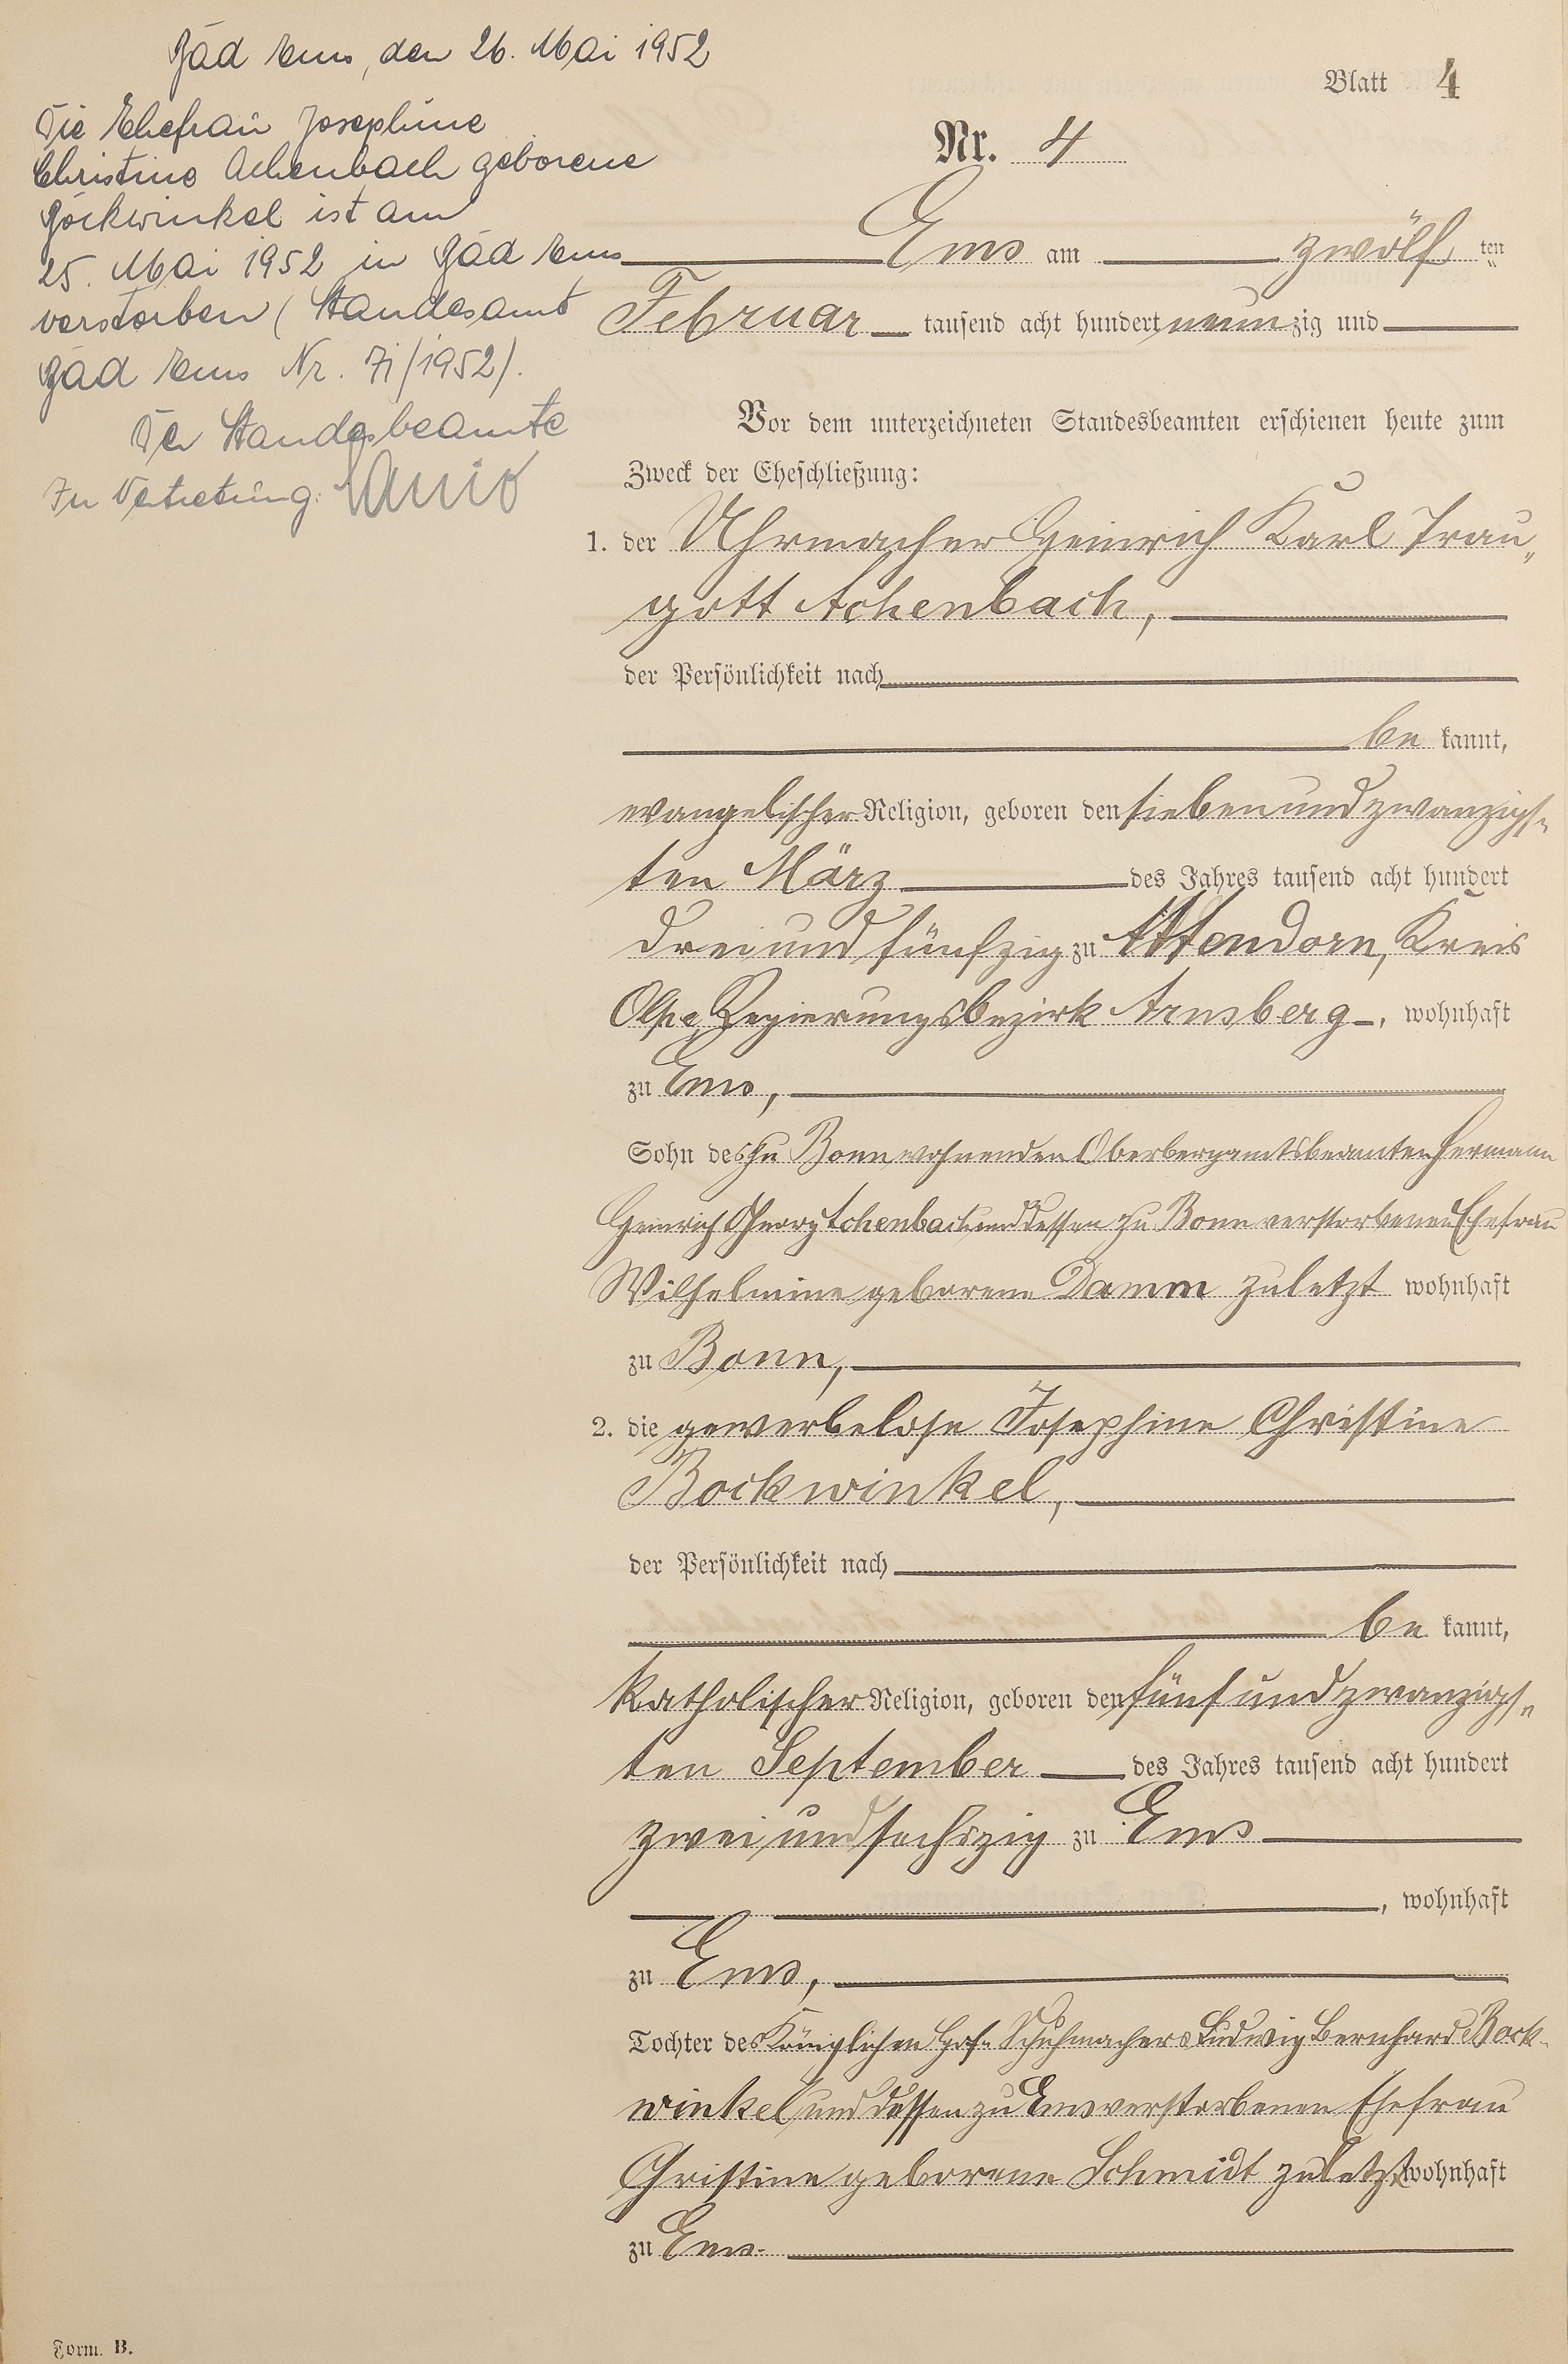 Bad Ems, den 26. Mai 1952
Die Ehefrau Josephine
Christine Achenbach geborene
Bockwinkel ist am
25. Mai 1952 in Bad Ems
verstorben (Standesamt
Bad Ems Nr. 71/1952).
Der Standesbeamte
In Vertretung:
Blatt 4
Nr. 4
Ems am zwölf ten
Februar tausend acht hundert neunzig und
Vor dem unterzeichneten Standesbeamten erschienen heute zum
Zweck der Eheschließung:
1. der Uhrmacher Heinrich Karl Trau„
gott Achenbach,
der Persönlichkeit nach
be kannt,
evangelischer Religion, geboren den siebenundzwanzigs„
ten März des Jahres tausend acht hundert
dreiundfünfzig zu Attendorn, Kreis
Olpe, Regierungsbezirk Arnsberg, wohnhaft
zu Ems,
Sohn des zu Bonn wohnenden Oberbergamtsbeamten Hermann
Heinrich Georg Achenbach und dessen zu Bonn verstorbenen Ehefrau
Wilhelmine geborene Damm zuletzt wohnhaft
zu Bonn,
2. die gewerbelose Josephine Christine
Bockwinkel,
der Persönlichkeit nach
be kannt,
katholischer Religion, geboren den fünfundzwanzigs„
ten September des Jahres tausend acht hundert
zwei und sechszig zu Ems
, wohnhaft
zu Ems,
Tochter des Königlichen Hof- Schuhmachers Ludwig Bernhard Bock-
winkel und dessen zu Ems verstorbenen Ehefrau
Christine geborene Schmidt zuletzt wohnhaft
zu Ems.
Form. B.